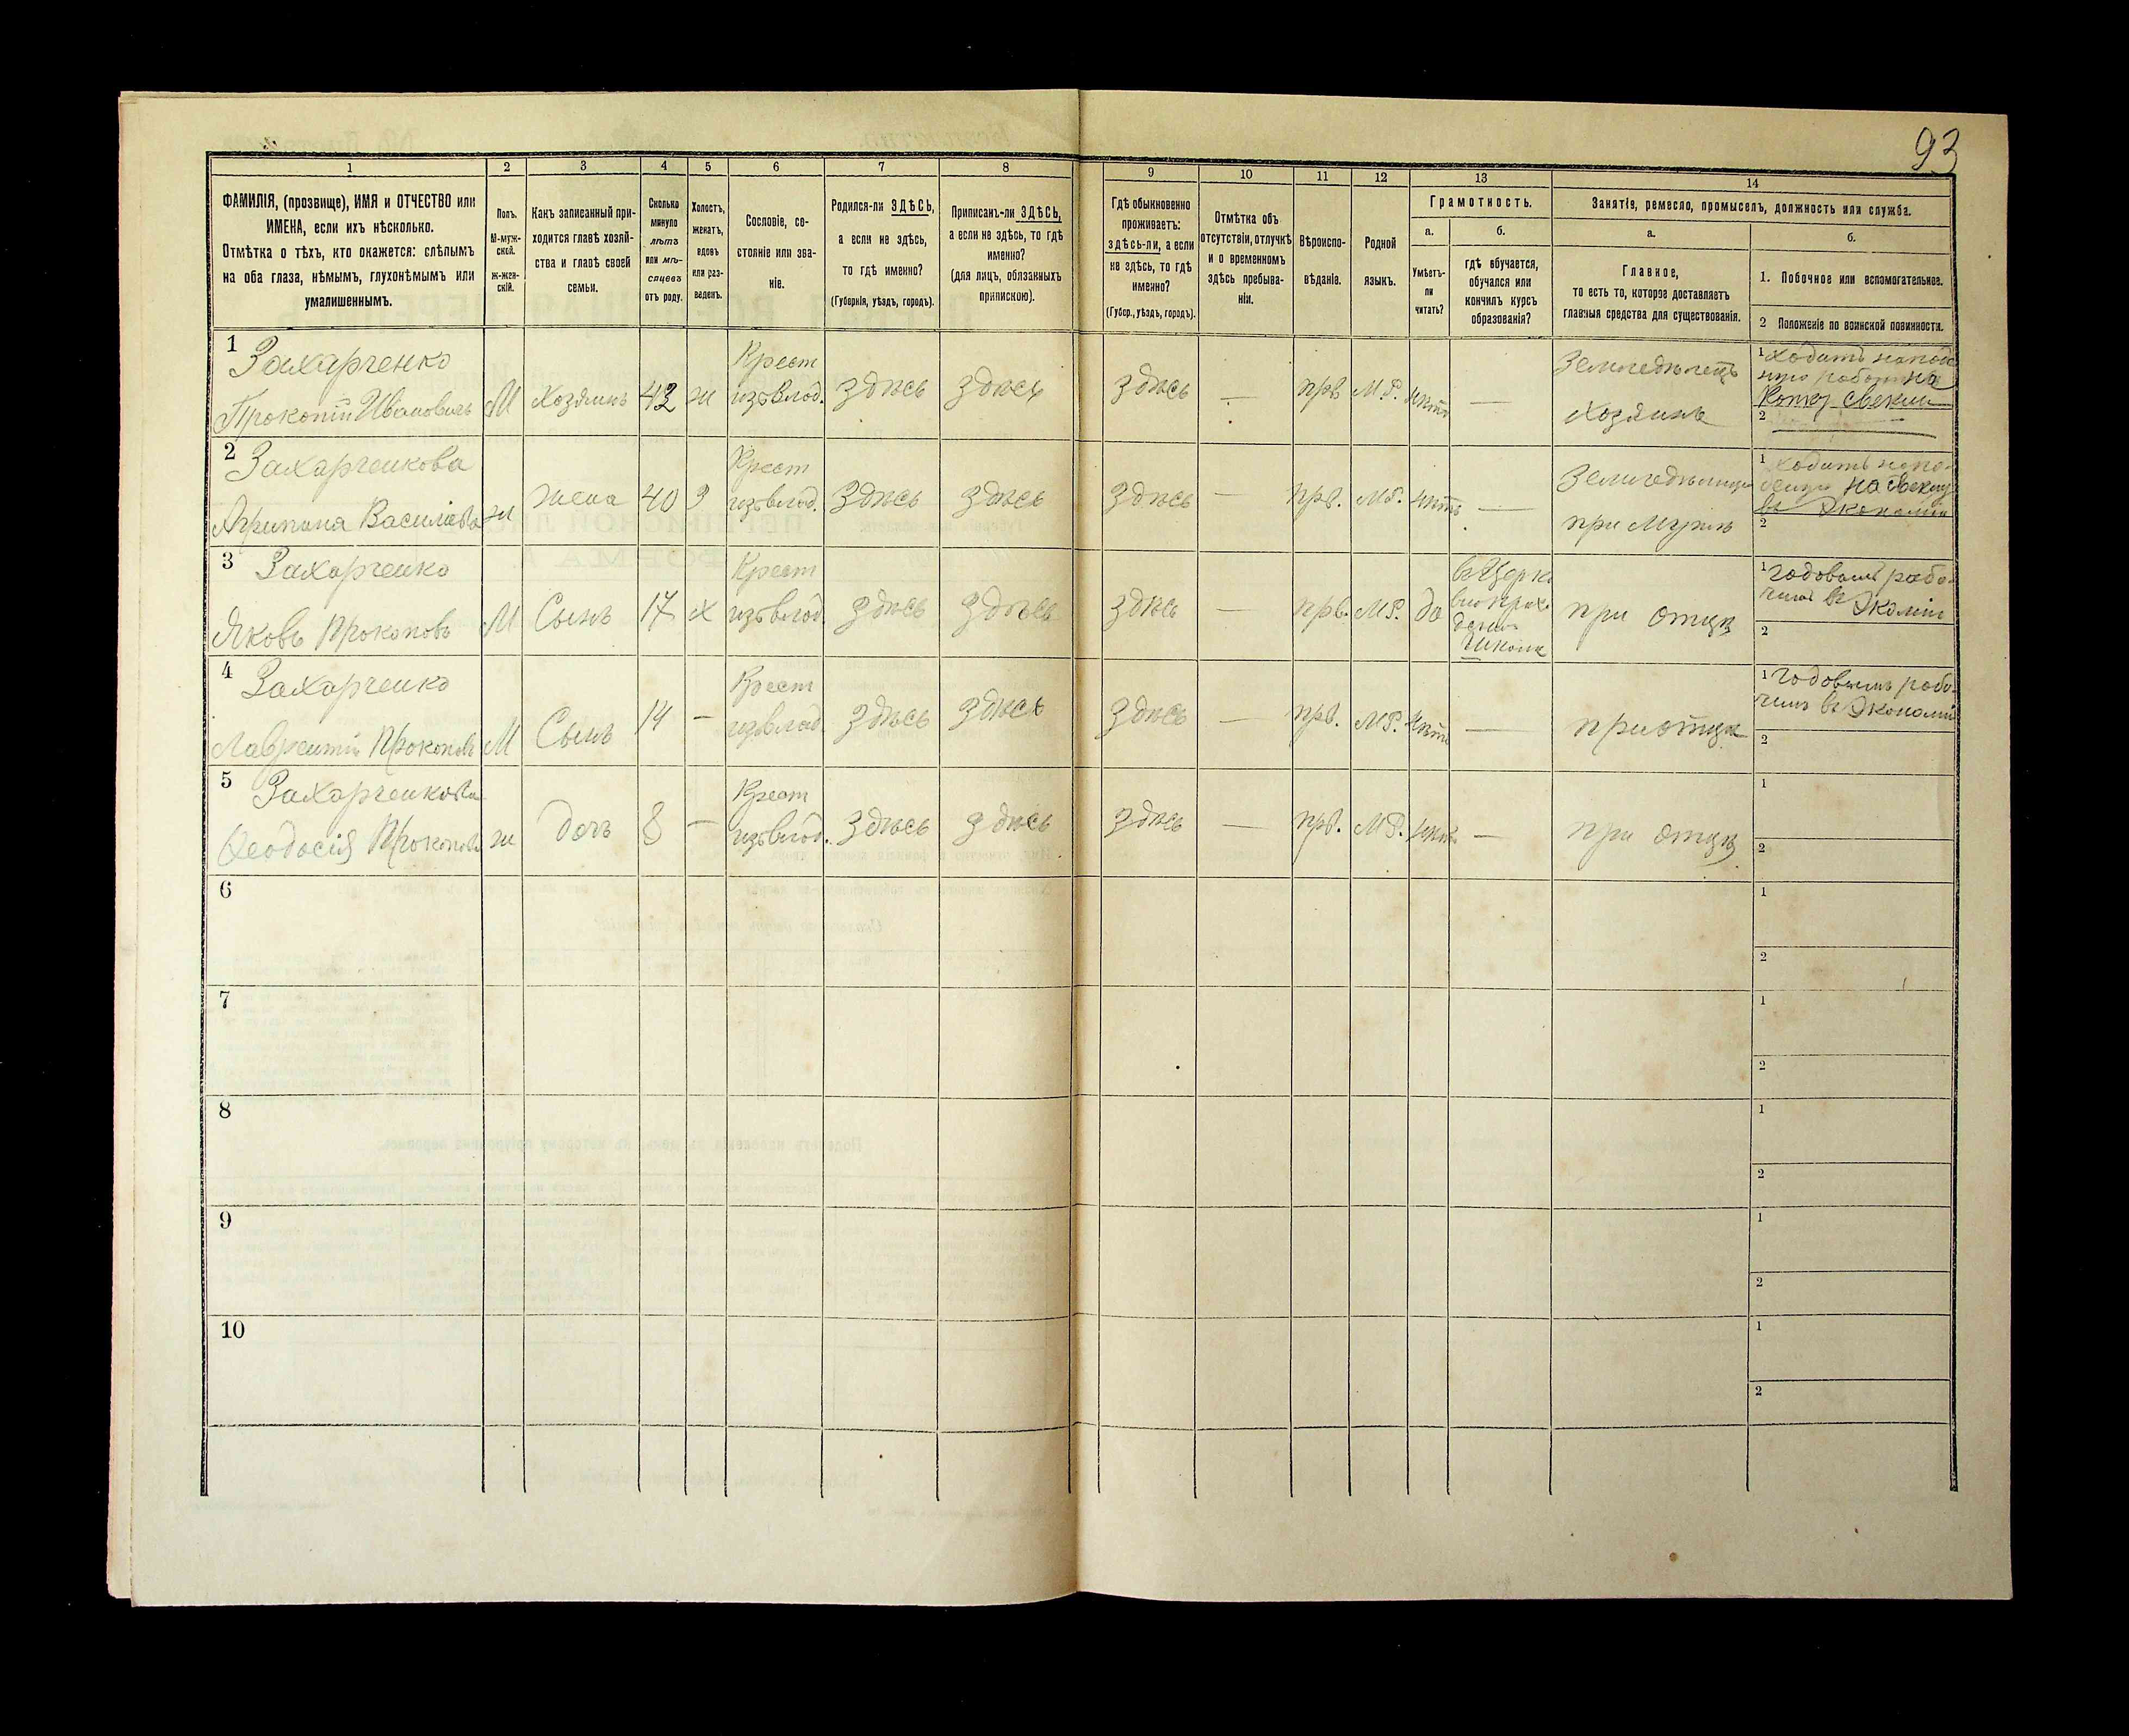 93
1
2
3
4
5
6
7
8
9
10
11
12
13
14
ФАМИЛІЯ, (прозвище), ИМЯ и ОТЧЕСТВО или
ИМЕНА, если ихъ нѣсколько.
Отмѣтка о тѣхъ, кто окажется: слѣпымъ
на оба глаза, нѣмымъ, глухонѣмымъ или
умалишеннымъ.
Полъ.
М-муж-
ской.
ж-жен-
скій.
Какъ записанный при-
ходится главѣ хозяй-
ства и главѣ своей
семьи.
Сколько
минуло
лѣтъ
или мѣ-
сяцевъ
отъ роду.
Холостъ,
женатъ,
вдовъ
или раз-
веденъ.
Сословіе, со-
стояніе или зва-
ніе.
Родился-ли ЗДѢСЬ,
а если не здѣсь,
то гдѣ именно?
(Губернія, уѣздъ, городъ).
Приписанъ-ли ЗДѢСЬ,
а если не здѣсь, то гдѣ
именно?
(для лицъ, обязанныхъ
припискою).
Гдѣ обыкновенно
проживаетъ:
здѣсь-ли, а если
не здѣсь, то гдѣ
именно?
(Губер., уѣздъ, городъ).
Отмѣтка объ
отсутствіи, отлучкѣ
и о временномъ
здѣсь пребыва-
ніи.
Вѣроиспо-
вѣданіе.
Родной
языкъ.
Грамотность.
а.
Умѣетъ-
ли
читать?
б.
гдѣ обучается,
обучался или
кончилъ курсъ
образованія?
Занятіе, ремесло, промыселъ, должность или служба.
а.
Главное,
то есть то, которое доставляетъ
главныя средства для существованія.
б.
1. Побочное или вспомогательное.
2 Положеніе по воинской повинности.
1
Захарченко
Прокопій Ивановичъ
М
Хозяинъ
42
ж
Крест
изъ влад.
Здѣсь
Здѣсь
Здѣсь
—
прв
М.Р.
нѣтъ
—
Земледѣлецъ
Хозяинъ
1 ходитъ
на
2
2
Захарченкова
Агрипина Василіева
ж
жена
40
З
Крест
изъ влад.
Здѣсь
Здѣсь
Здѣсь
—
прв.
М.Р.
нѣтъ
—
при Мужѣ
1 Ходитъ
на
въ Экономіи
2
3
Захарченко
Яковъ Прокоповъ
М
Сынъ
17
х
Крест
изъ влад.
Здѣсь
Здѣсь
Здѣсь
—
прв.
М.Р.
да
въ Церк.
школѣ
при отцѣ
1 Годовымъ рабо-
чимъ въ
2
4
Захарченко
Лаврентій Прокоповъ
М
Сынъ
14
—
Крест
изъ влад
Здѣсь
Здѣсь
Здѣсь
—
прв.
М.Р.
нѣтъ
—
при отцѣ
1 Годовымъ рабо-
чимъ въ Экономіи
2
5
Захарченкова
Феодосія Прокопова
ж
дочъ
8
—
Крест
изъ влад.
Здѣсь
Здѣсь
Здѣсь
—
прв.
М.Р.
нѣтъ
—
при отцѣ
1
2
6
1
2
7
1
2
8
1
2
9
1
2
10
1
2